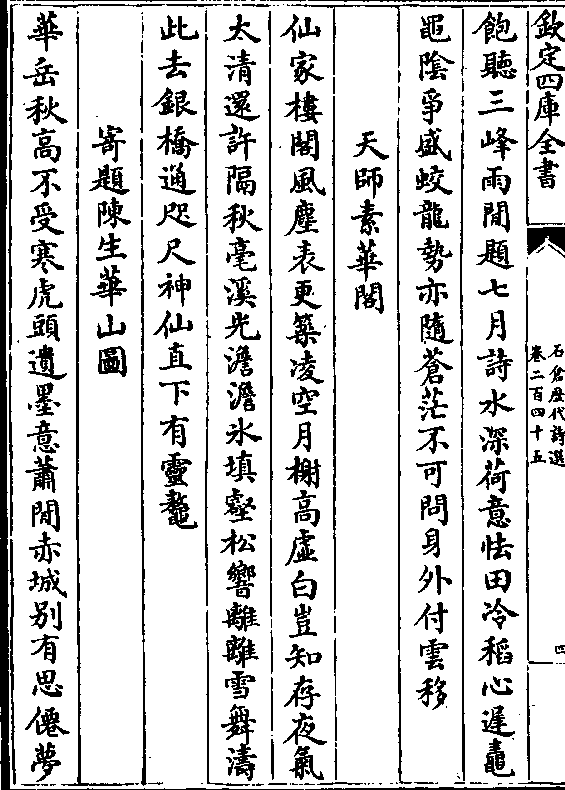 欽定四庫全書
石倉歷代詩選
卷二百四十五
四
飽聽三峰雨閒題七月詩水深荷意怯田冷稻心遲鼃
黽陰爭盛蛟龍勢亦隨蒼茫不可問身外付雲移
天師素華閣
仙家樓閣風塵表更築凌空月榭高虛白豈知存夜氣
太清還許隔秋毫溪光澹澹氷填壑松響離離雪舞濤
此去銀橋通咫尺神仙直下有靈鼇
寄題陳生華山圖
華岳秋高不受寒虎頭遺墨意蕭閒赤城别有思僊夢